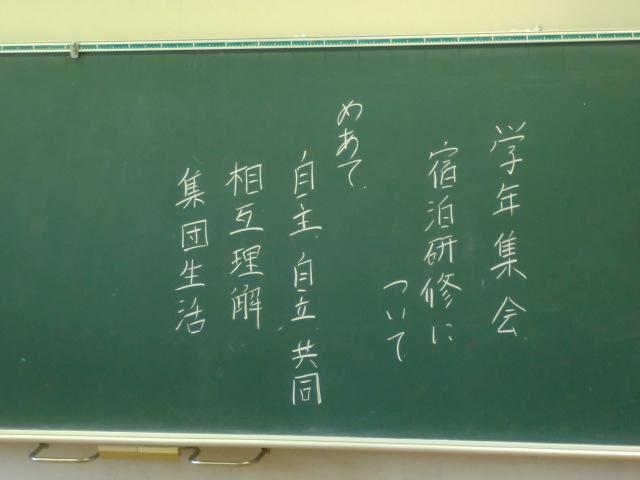 学年集会
宿泊研修に
ついて
めあて
自主 自立 共同
相互理解
集団生活